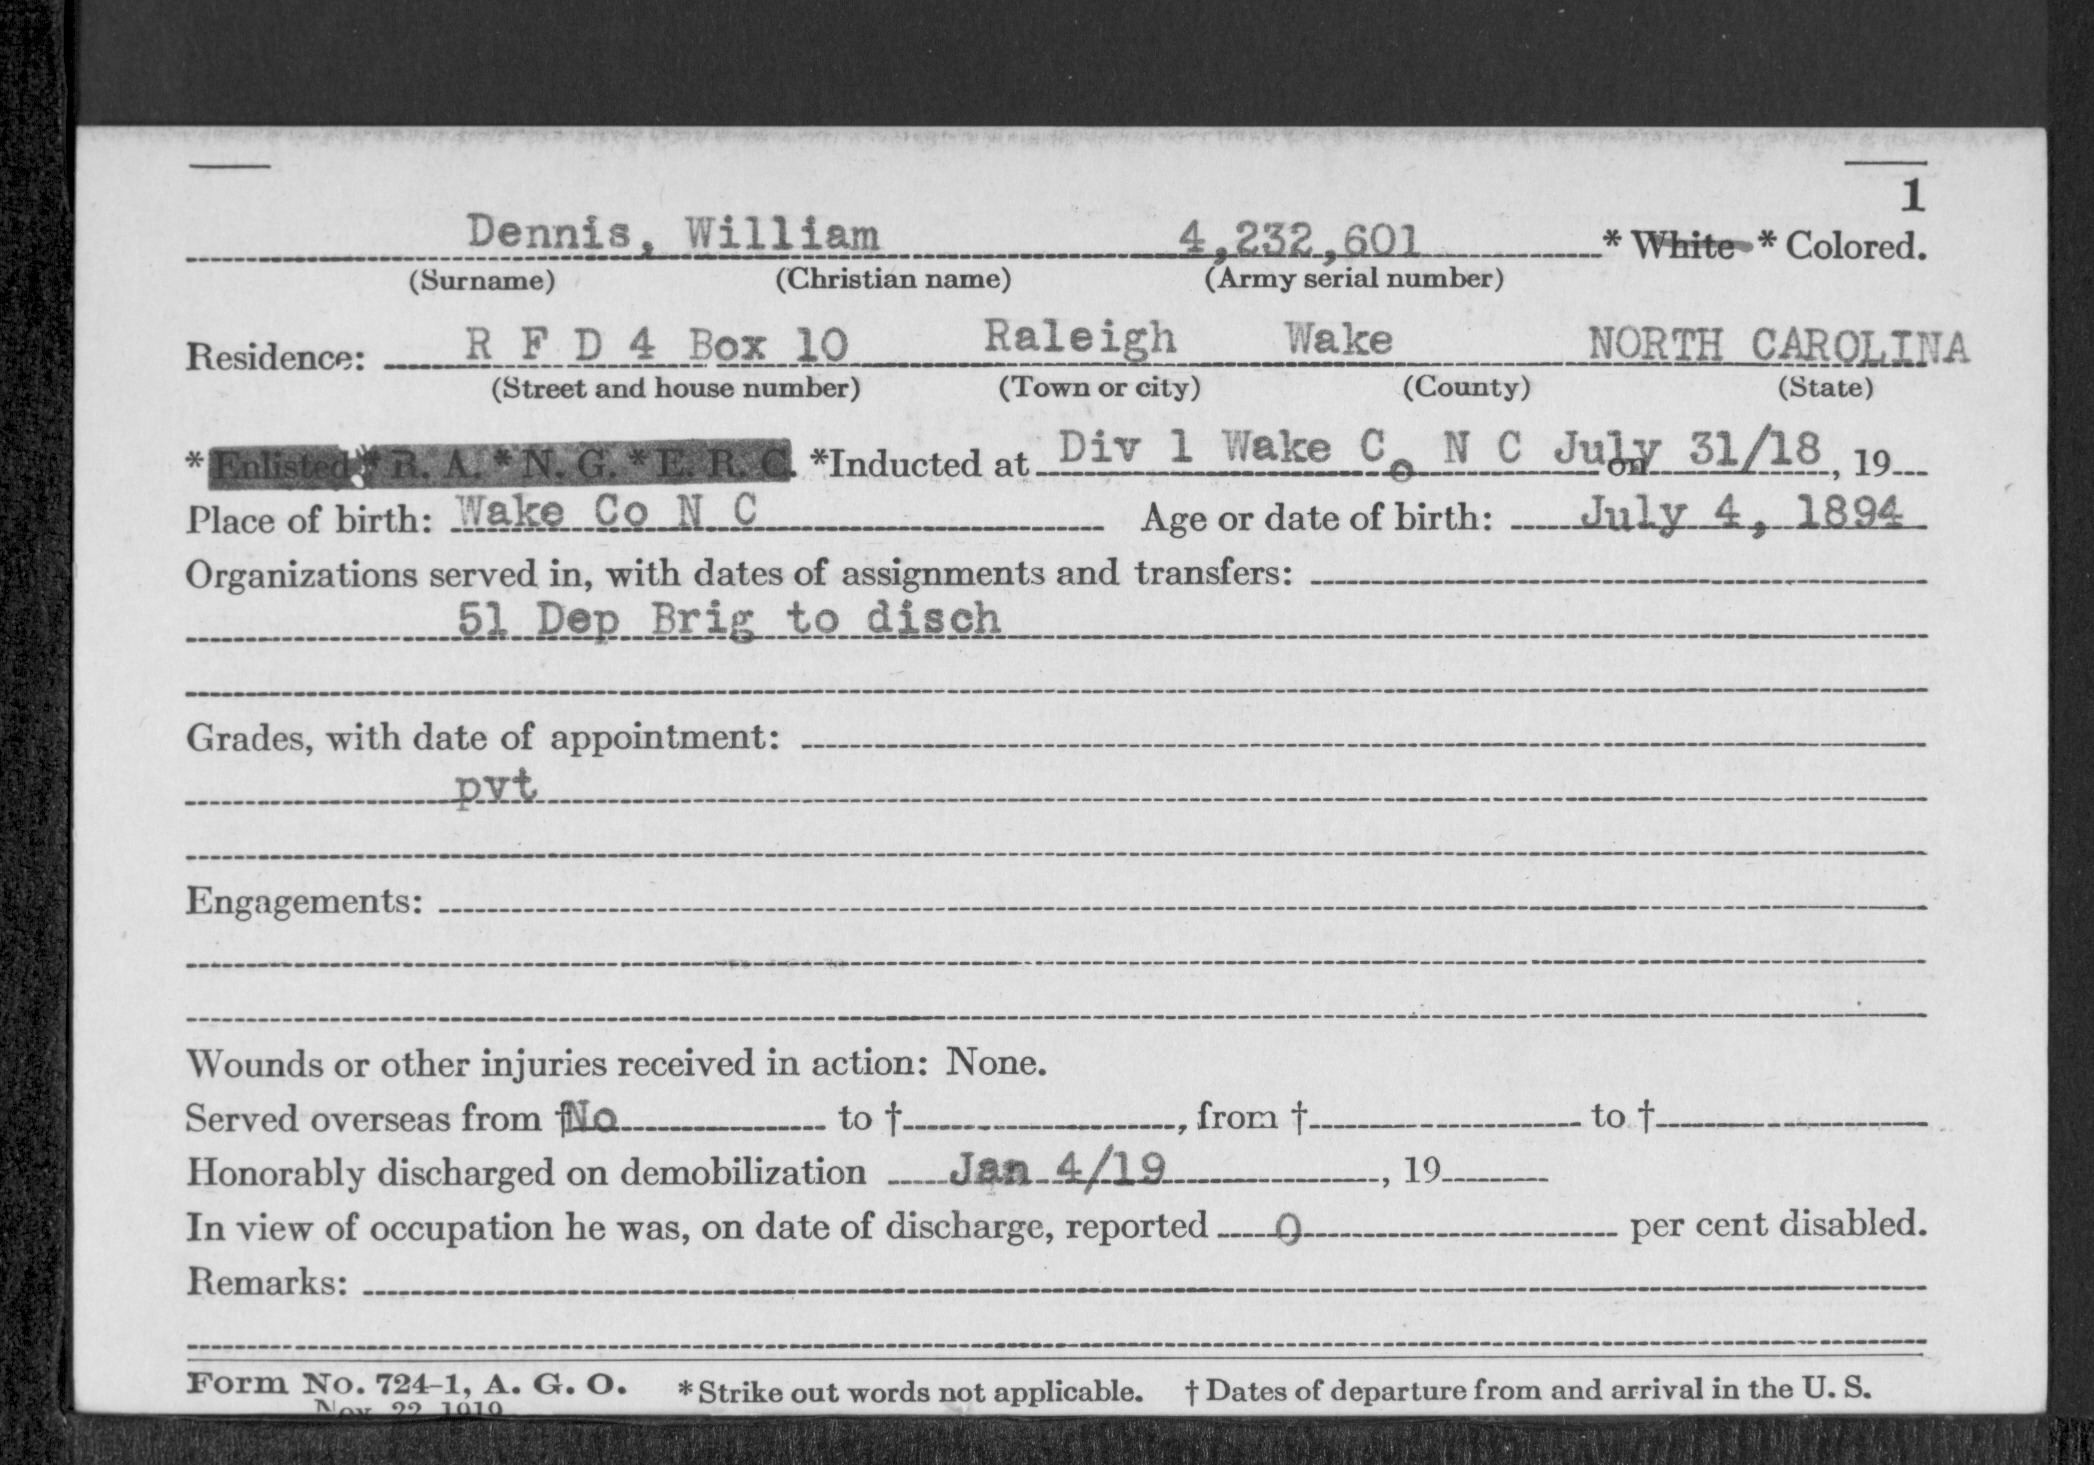 1
Dennis, William 4,232,601 * White * Colored.
(Surname) (Christian name) (Army serial number)
Residence: R F D 4 Box 10 Raleigh Wake NORTH CAROLINA
(Street and house number) (Town or city) (County) (State)
* Enlisted * R. A. * N. G. * E. R. C. *Inducted at Div 1 Wake Co N C on July 31/18, 19
Place of birth: Wake Co N C Age or date of birth: July 4, 1894
Organizations served in, with dates of assignments and transfers:
51 Dep Brig to disch
Grades, with date of appointment:
pvt
Engagements:
Wounds or other injuries received in action: None.
Served overseas from † No to †, from † to †
Honorably discharged on demobilization Jan 4/19, 19
In view of occupation he was, on date of discharge, reported 0 per cent disabled.
Remarks:
Form No. 724-1, A. G. O. *Strike out words not applicable. † Dates of departure from and arrival in the U. S.
Nov. 22 1919